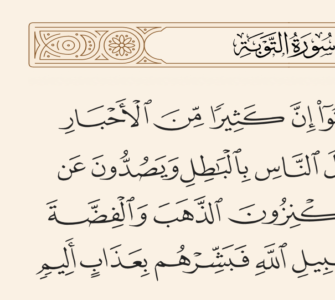 سُورَةُ التَّوۡبَةِ
إِنَّ كَثِيرٗا مِّنَ ٱلۡأَحۡبَارِ
ٱلنَّاسِ بِٱلۡبَٰطِلِ وَيَصُدُّونَ عَن
ٱلذَّهَبَ وَٱلۡفِضَّةَ
ٱللَّهِ فَبَشِّرۡهُم بِعَذَابٍ أَلِيمٖ